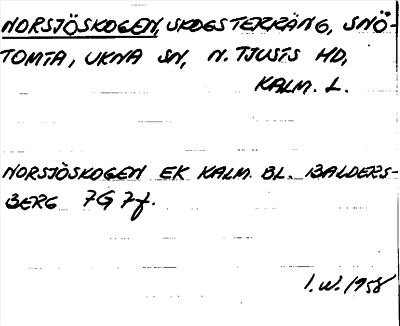 NORSJÖSKOGEN, SKOGSTERRÄNG, SNÖ-
TOMTA, UKNA SN, N. TJUSTS HD,
KALM. L.
NORSJÖSKOGEN EK KALM. BL. BALDERS-
BERG 7G 7f.
I.W. 1958